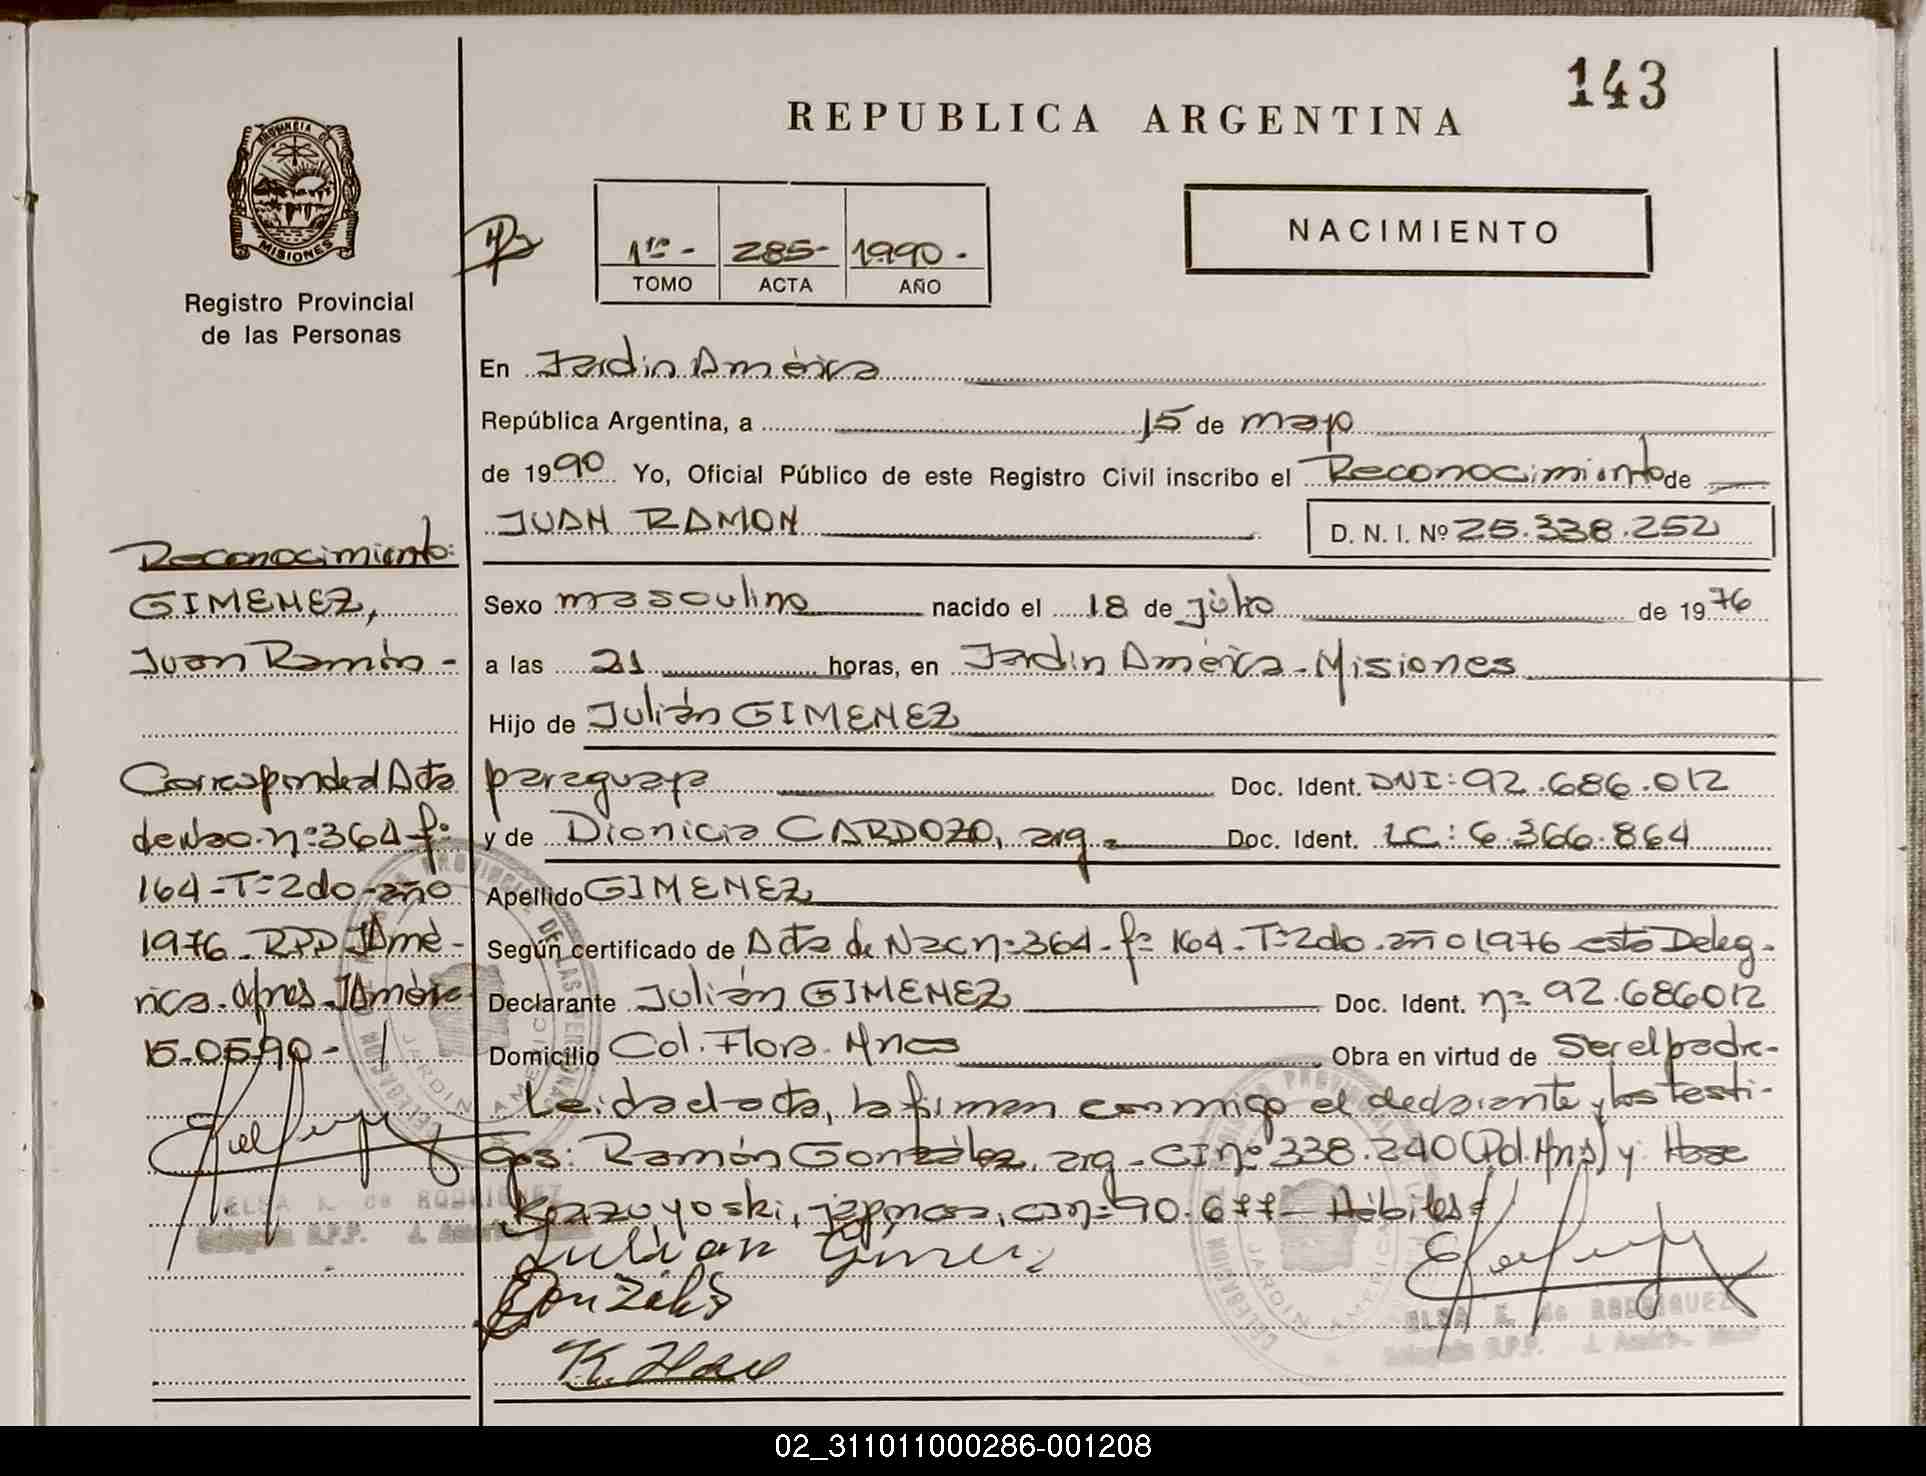 143
REPUBLICA ARGENTINA
PROVINCIA DE
MISIONES
Registro Provincial
de las Personas
1ro - 285- 1990 -
TOMO ACTA AÑO
NACIMIENTO
En Jardin América
República Argentina, a 15 de mayo
de 1990 Yo, Oficial Público de este Registro Civil inscribo el Reconocimiento de
JUAN RAMON D. N. I. Nº 25.338.252
Sexo masculino nacido el 18 de julio de 1976
a las 21 horas, en Jardin América - Misiones
Hijo de Julián GIMENEZ
paraguayo Doc. Ident. DNI: 92.686.012
y de Dionicia CARDOZO, arg - Doc. Ident. LC: 6.366.864
Apellido GIMENEZ
Según certificado de Acta de Nac nº 364 - fº 164 - Tº 2do - año 1976 esta Deleg -
Declarante Julián GIMENEZ Doc. Ident. nº 92.686012
Domicilio Col. Flora - Mnes Obra en virtud de Ser el padre -
Leida el acta, la firman conmigo el declarante y los testi-
gos: Ramón González, arg - CI nº 338.240 (Pol. Mns) y Hase
Kazzuyoski, japones, CI nº 90.677 - Hábiles
Julian Gimenez
Gonzales
K. Hase
Reconocimiento:
GIMENEZ,
Juan Ramón -
Corresponde al Acta
de Nac. nº 364 - fº
164 - Tº 2do - año
1976 - RPP JAmé -
rica - Mnes - JAméric
15-05-90 -
ELSA K. de RODRIGUEZ
Delegada R.P.P. J. América
ELSA K. de RODRIGUEZ
Delegada R.P.P. J. América
02_311011000286-001208